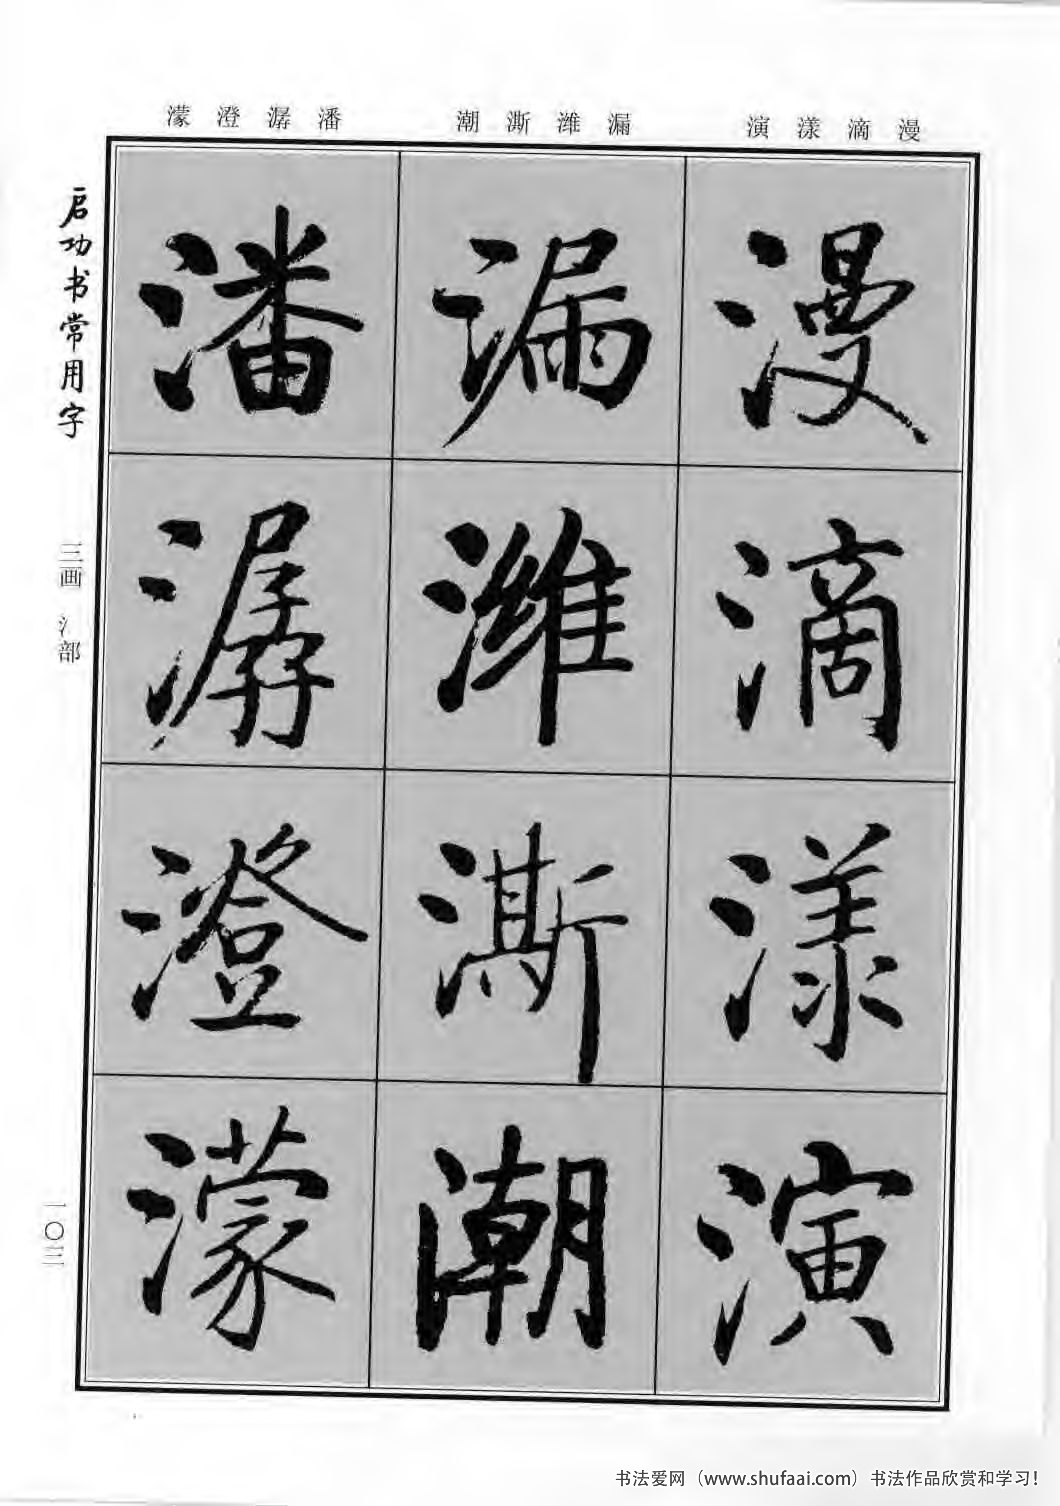 濛 澄 潺 潘
潮 澌 潍 漏
演 漾 滴 漫
启功书常用字
三画 氵部
一〇三
漫
滴
漾
演
漏
潍
澌
潮
潘
潺
澄
濛
书法爱网（www.shufaai.com）书法作品欣赏和学习！